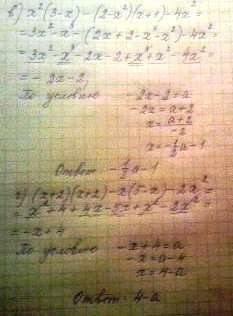 в) x²(3-x) - (2-x²)(x+1) - 4x² =
= 3x² - x³ - (2x + 2 - x³ - x²) - 4x² =
= 3x² - x³ - 2x - 2 + x³ + x² - 4x² =
= - 2x - 2
По условию -2x - 2 = a
-2x = a + 2
x = (a+2)/-2
x = -½a - 1
Ответ -½a - 1
г) (x+2)(x+2) - x(5-x) - 2x² =
= x² + 4 + 4x - 5x + x² - 2x² =
= -x + 4
По условию -x + 4 = a
-x = a - 4
x = 4 - a
Ответ: 4 - a